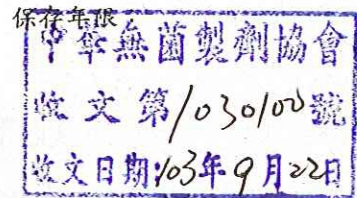 保存年限
中華無菌製劑協會
收文第1030100號
收文日期:103年9月22日